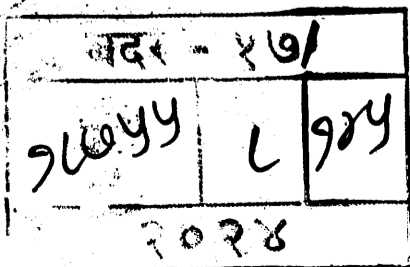 बदर - १७/
१८७५५ ८ १४५
२०२४